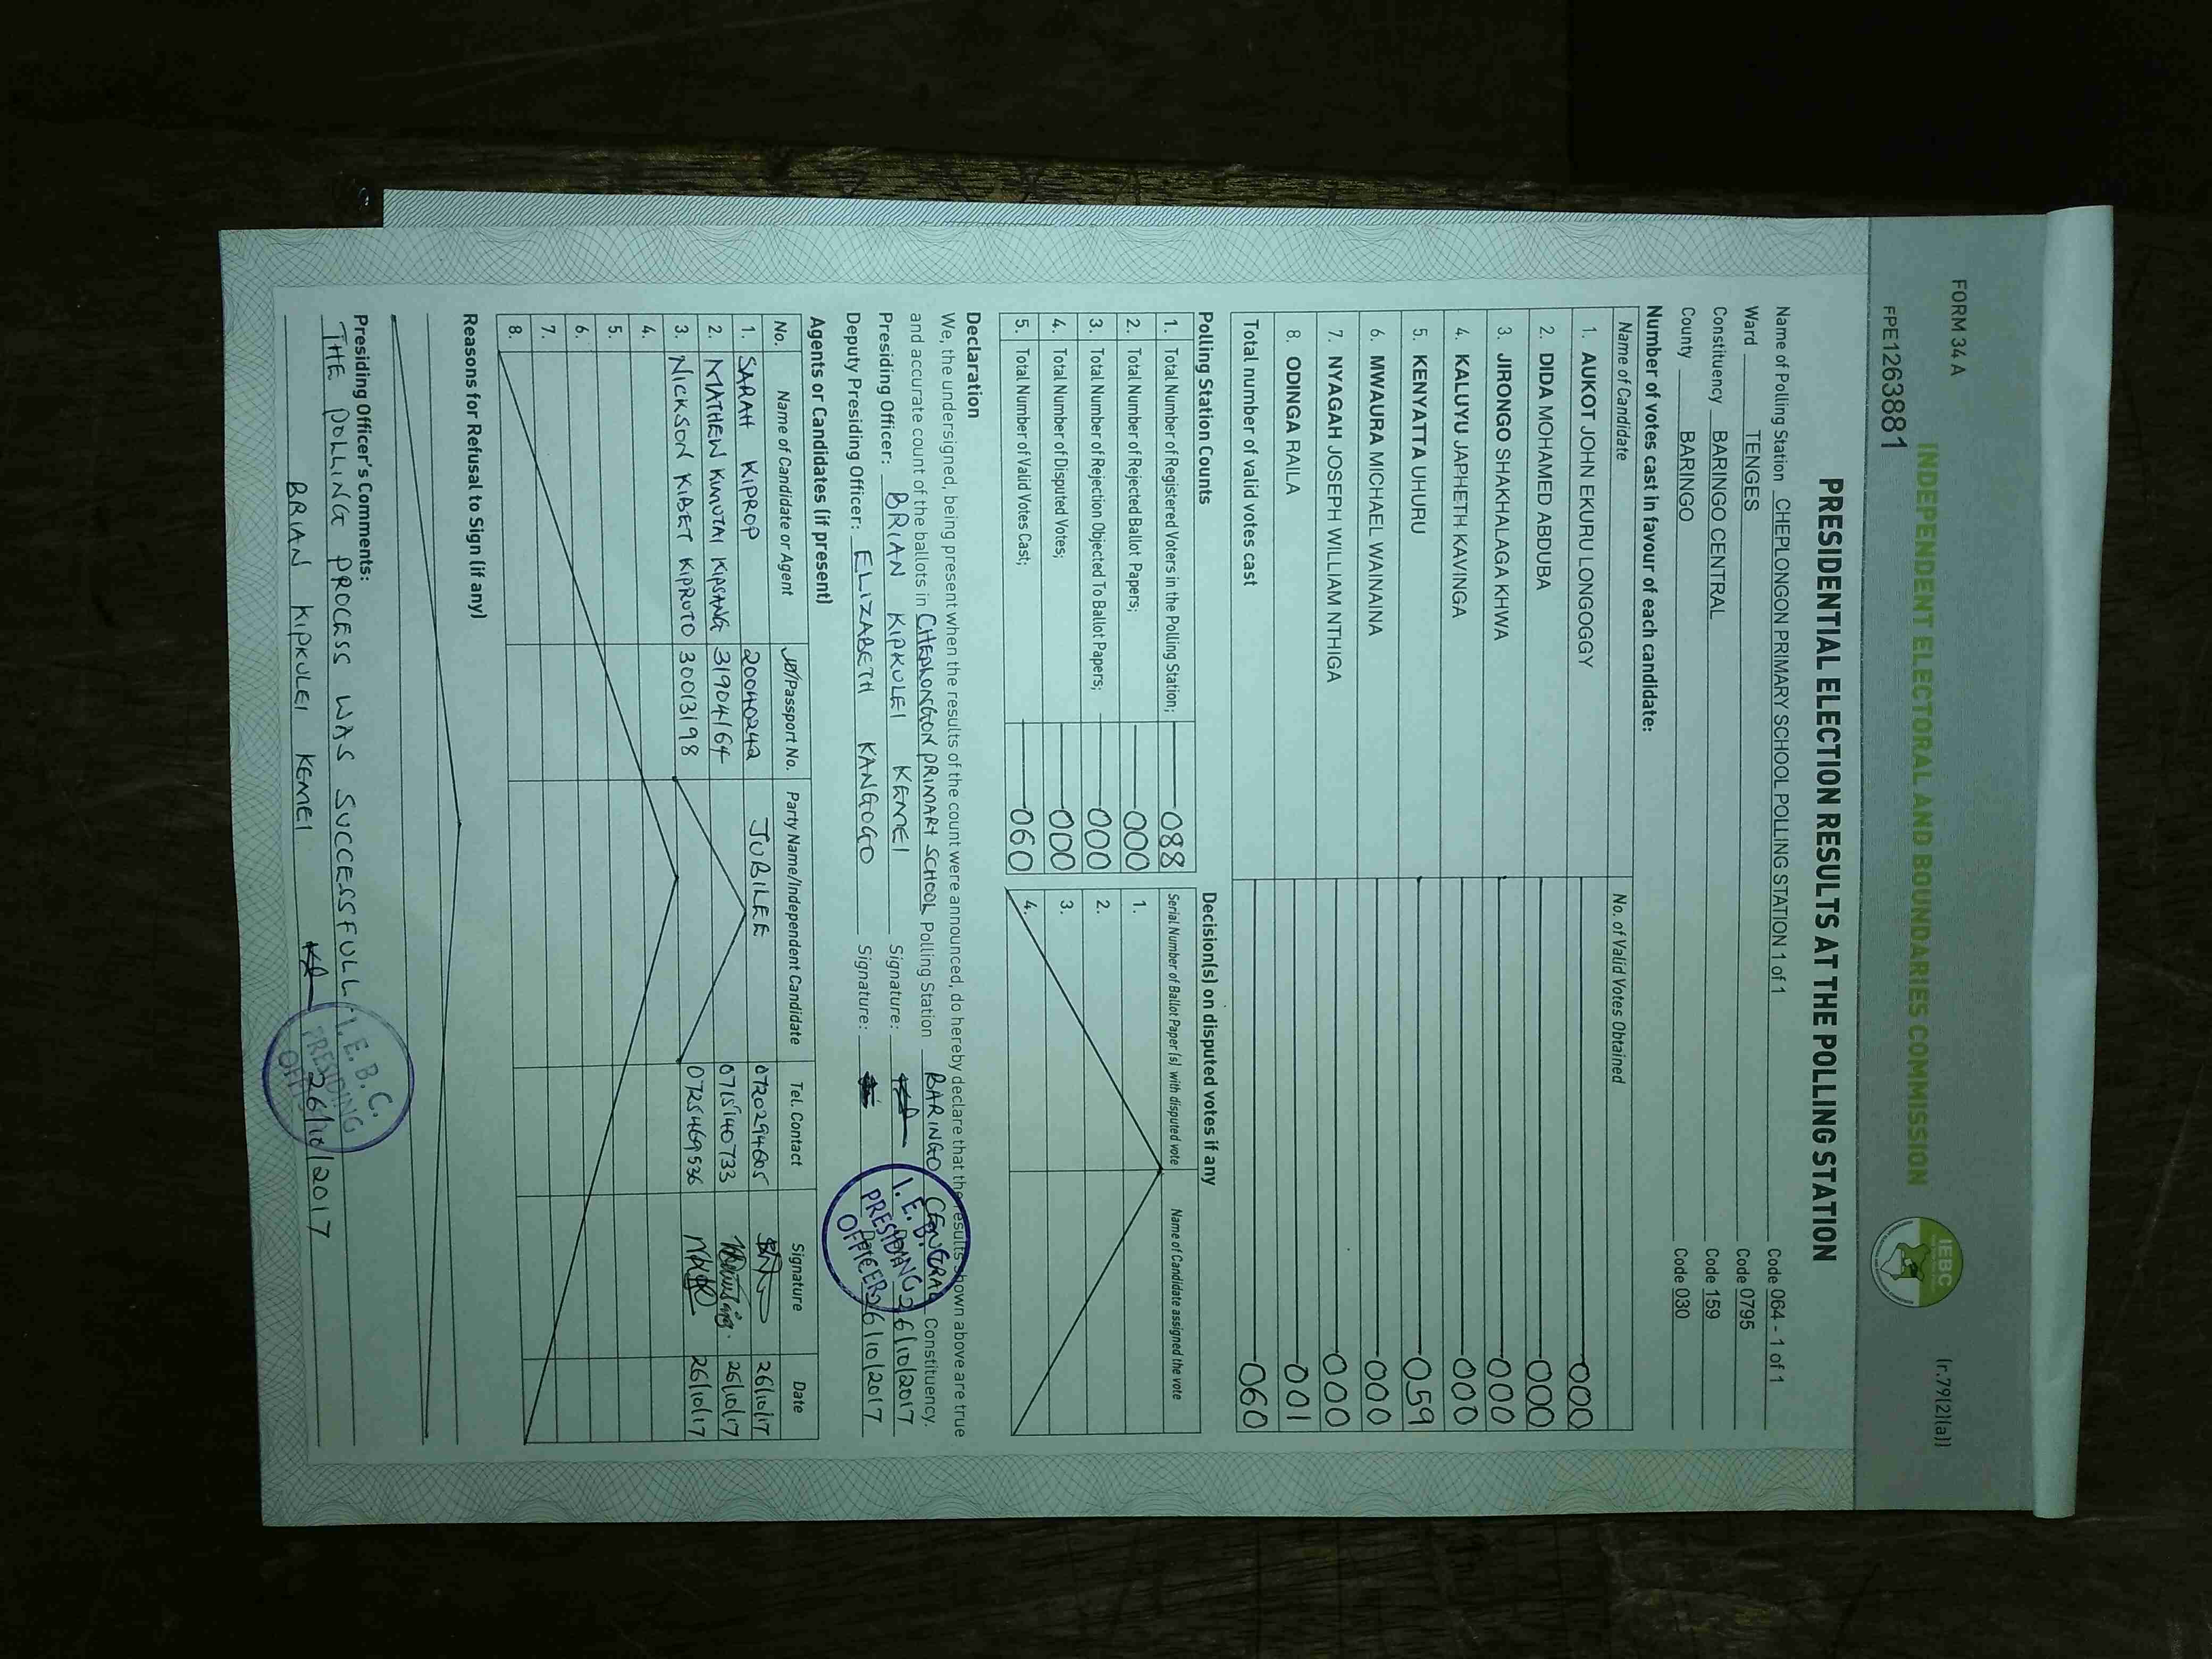 FORM 34 A
(r.79(2)(a))
FPE1263881
INDEPENDENT ELECTORAL AND BOUNDARIES COMMISSION
IEBC
PRESIDENTIAL ELECTION RESULTS AT THE POLLING STATION
Name of Polling Station CHEPLONGON PRIMARY SCHOOL POLLING STATION 1 of 1 Code 064 - 1 of 1
Ward TENGES Code 0795
Constituency BARINGO CENTRAL Code 159
County BARINGO Code 030
Number of votes cast in favour of each candidate:
Name of Candidate No. of Valid Votes Obtained
1. AUKOT JOHN EKURU LONGOGGY 000
2. DIDA MOHAMED ABDUBA 000
3. JIRONGO SHAKHALAGA KHWA 000
4. KALUYU JAPHETH KAVINGA 000
5. KENYATTA UHURU 059
6. MWAURA MICHAEL WAINAINA 000
7. NYAGAH JOSEPH WILLIAM NTHIGA 000
8. ODINGA RAILA 001
Total number of valid votes cast 060
Polling Station Counts Decision(s) on disputed votes if any
1. Total Number of Registered Voters in the Polling Station; 088 Serial Number of Ballot Paper (s) with disputed vote Name of Candidate assigned the vote
2. Total Number of Rejected Ballot Papers; 000 1.
3. Total Number of Rejection Objected To Ballot Papers; 000 2.
4. Total Number of Disputed Votes; 000 3.
5. Total Number of Valid Votes Cast; 060 4.
Declaration
We, the undersigned, being present when the results of the count were announced, do hereby declare that the results shown above are true
and accurate count of the ballots in CHEPLONGON PRIMARY SCHOOL Polling Station BARINGO CENTRAL Constituency.
Presiding Officer: BRIAN KIPKULEI KEMEI Signature: 26/10/2017
Deputy Presiding Officer: ELIZABETH KANGOGO Signature: 26/10/2017
I.E.B.C. PRESIDING OFFICER
Agents or Candidates (if present)
No. Name of Candidate or Agent ID/Passport No. Party Name/Independent Candidate Tel. Contact Signature Date
1. SARAH KIPROP 20040242 JUBILEE 0720294605 26/10/17
2. MATHEW KIMUTAI KIPSANG 31904164 0715140733 26/10/17
3. NICKSON KIBET KIPRUTO 30013198 0725469536 26/10/17
4.
5.
6.
7.
8.
Reasons for Refusal to Sign (if any)
Presiding Officer's Comments:
THE POLLING PROCESS WAS SUCCESSFULL
BRIAN KIPKULEI KEMEI 26/10/2017
I.E.B.C. PRESIDING OFFICER